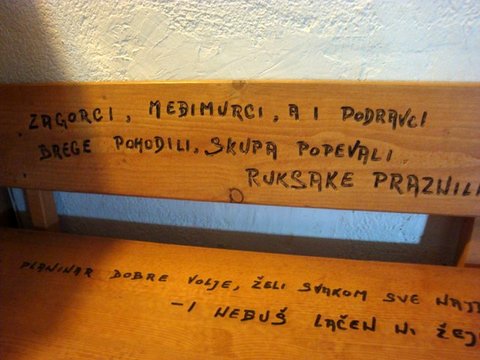 ZAGORCI, MEĐIMURCI, A I PODRAVCI
BREGE POHODILI, SKUPA POPEVALI,
RUKSAKE PRAZNILI
PLANINAR DOBRE VOLJE, ŽELI SVAKOM SVE NAJ
- I NEBUŠ LAČEN NI ŽEJ